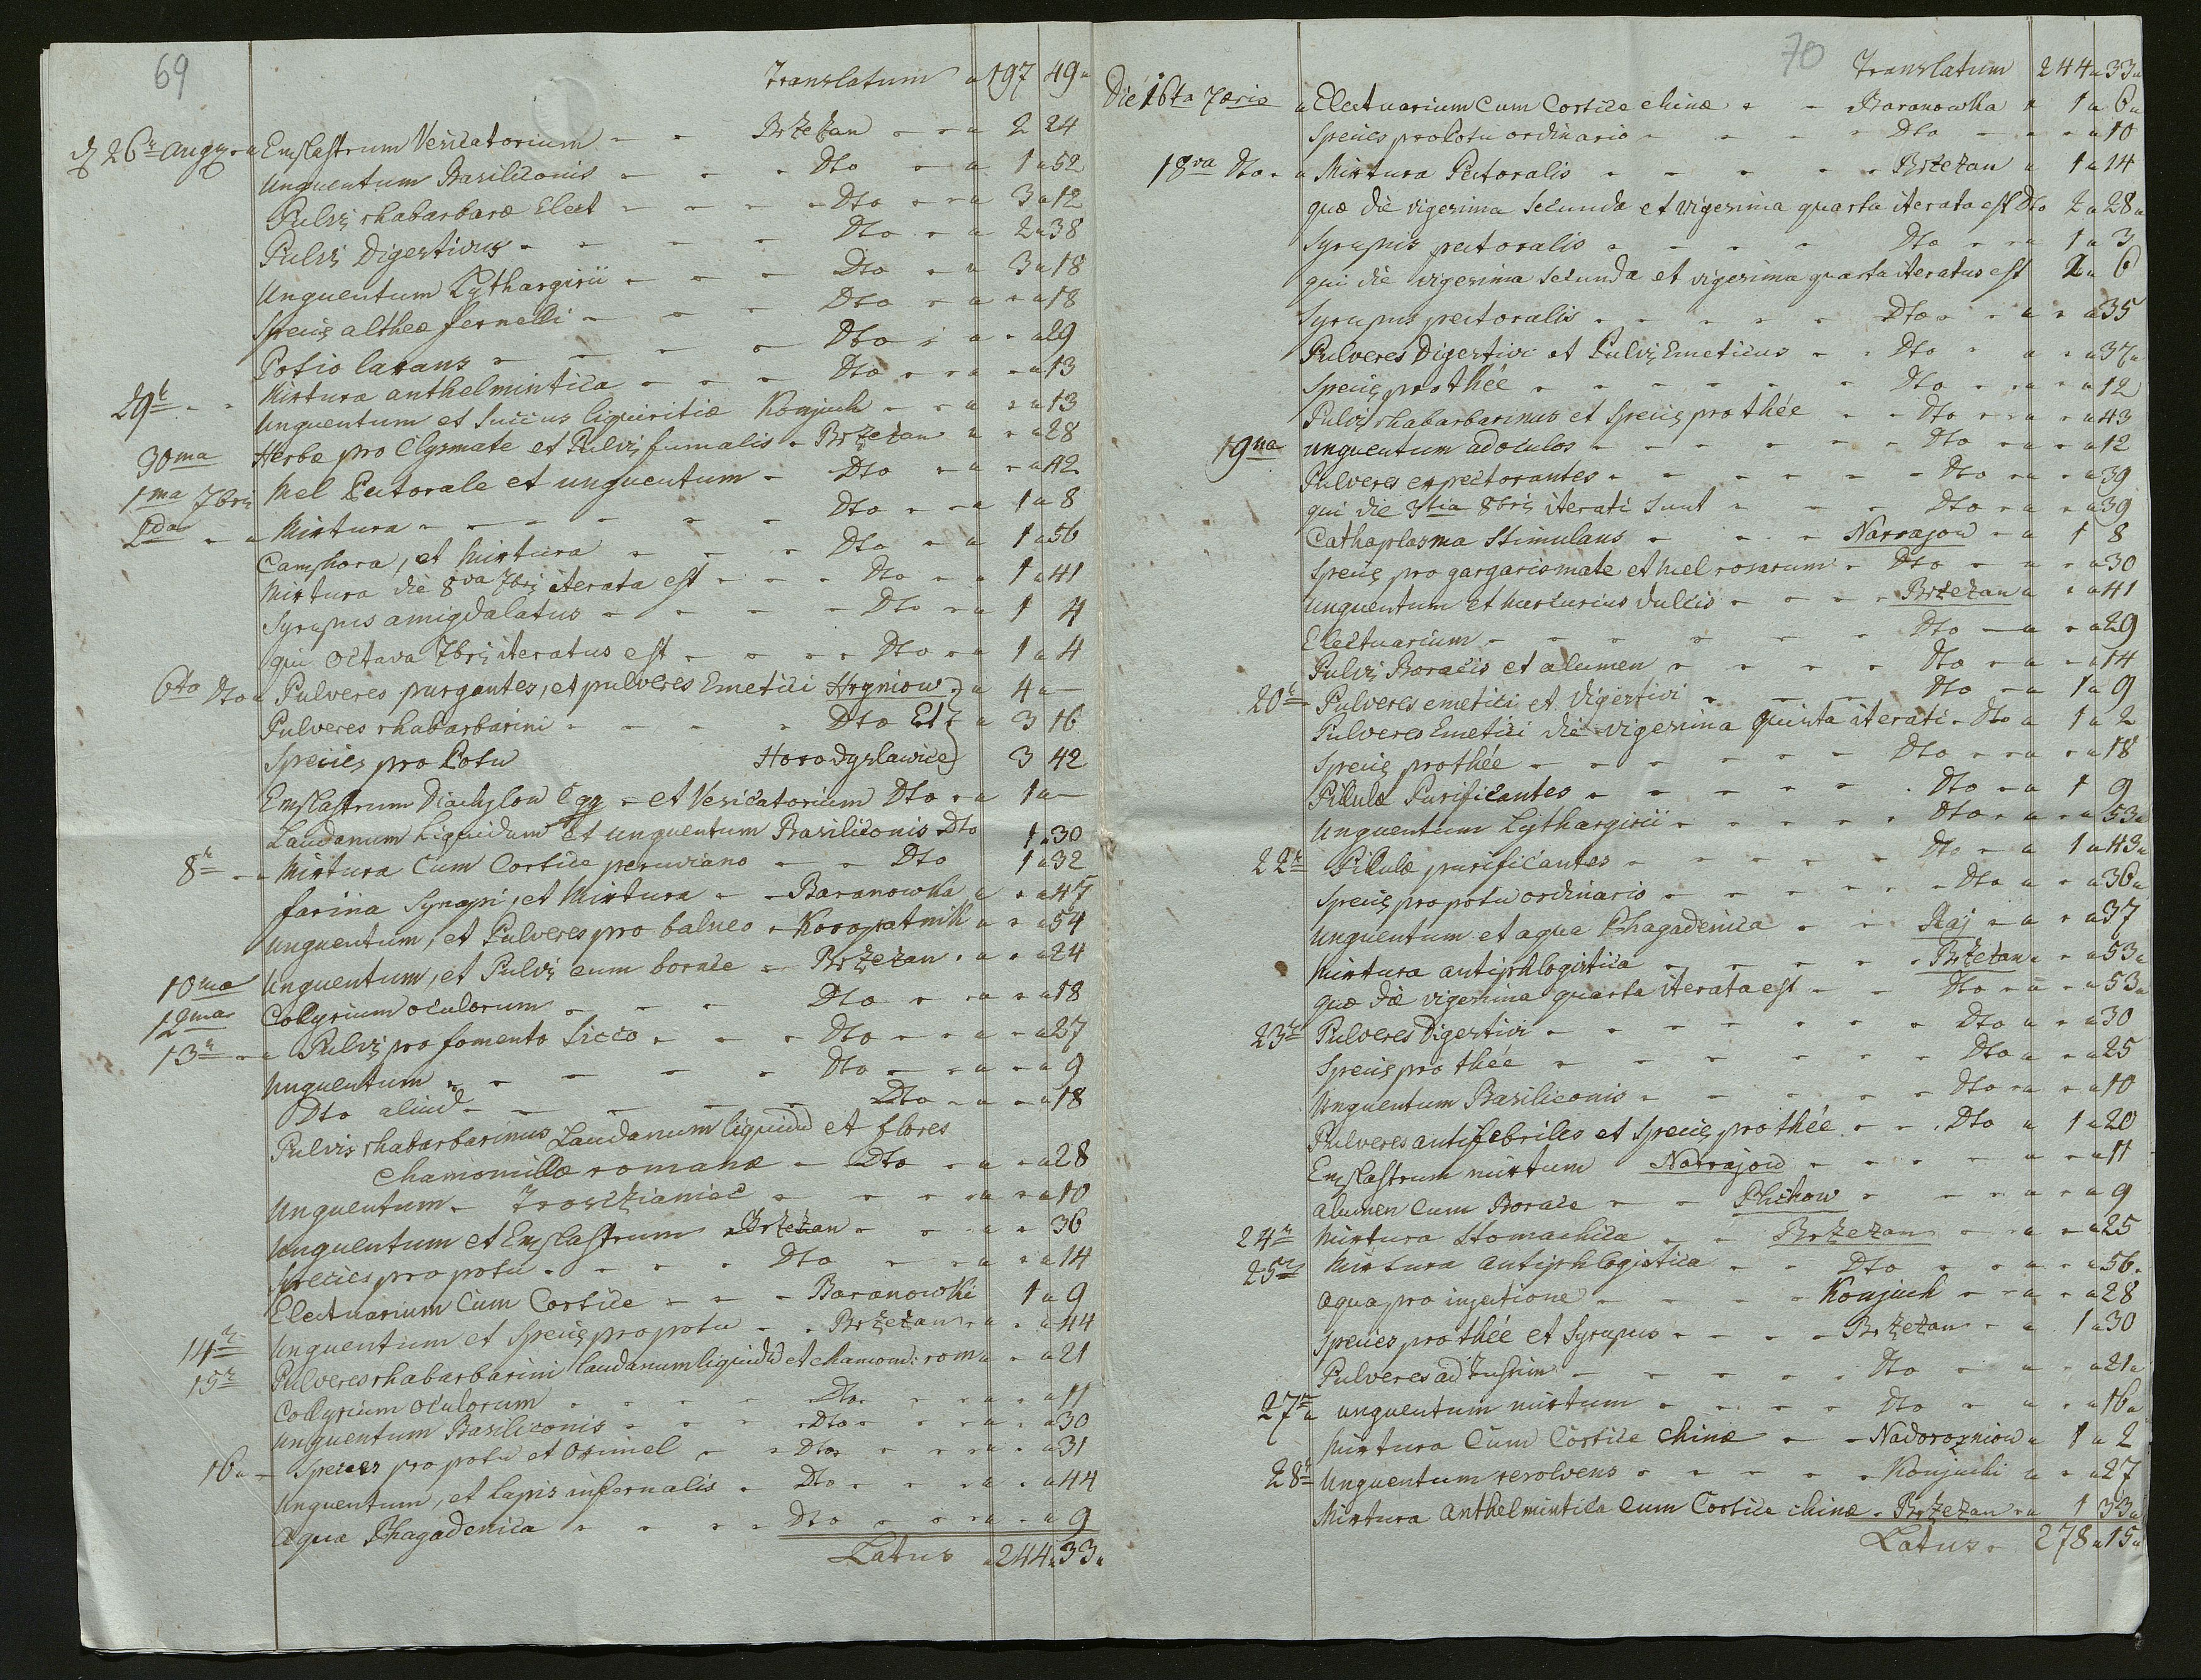 69
Translatum 197 49
26 augu Emplastrum Vesicatorium - - Brzeżan - - 2 24
Unguentum Basiliconis - - - Dto - 1 52
Pulvis rhabarbaræ Elect - - - - Dto - - 3 12
Pulvis Digestivus - - - - Dto - 2 38
Unguentum Lythargirii - - - Dto - 3 18
Species altheæ fernelli - - - Dto - - 18
Potio laxans - - - - Dto - - 29
Mixtura anthelmintica - - - Dto - - - 13
29 - - Unguentum et Succus liquiritiæ Konjuch - - - 13
Herbæ pro Clysmate et Pulvis fumalis - Brzeżan - 28
30ma Mel Pectorale et unguentum - Dto - - 42
1ma 7bris Mixtura - - - - - - Dto - - 1 8
2da - Camphora, et Mixtura - - - Dto - 1 56
Mixtura die 8va 7bris iterata est - - - Dto - 1 41
Syrupus amigdalatus - - - - Dto - 1 4
qui Octava 7bris iteratus est - - - - Dto - 1 4
6ta Dto Pulveres purgantes, et pulveres Emetici Hryniow 4 -
Pulveres rhabarbarini - - - - Dto Et 3 16
Species pro Potu Horodyslawice 3 42
Emplastrum Diachylon Cgg - et Vesicatorium Dto - 1 -
Laudanum Liquidum et unguentum Basiliconis Dto 1 30
8 - Mixtura Cum Cortice peruviano - - Dto 1 32
farina Synapi, et Mixtura - - Baranowka - 47
Unguentum, et Pulveres pro balneo - Koropatnik - 54
10ma Unguentum, et Pulvis cum borace - Brzeżan - - 24
12ma Collyrium oculorum - - - Dto - - - 18
13 - Pulvis pro fomento Sicco - - - Dto - - - 27
Unguentum - - - - - - Dto - - - 9
Dto aliud - - - - - Dto - - 18
Pulvis rhabarbarinus Laudanum liquidu et flores
Chamomillæ romanæ - Dto - - 28
Unguentum - - - - - 10
Unguentum et Emplastrum - Brzeżan - - - 36
Species pro potu - - - - - Dto - - - 14
Electuarium Cum Cortice - - - Baranowki 1 9
14 Unguentum et Species pro potu - - Brzeżan - - 44
15 Pulveres rhabarbarini laudanum liquidu et chamom: rom - 21
Collyrium oculorum - - - - Dto - - - 11
Unguentum Basiliconis - - - - Dto - - - 30
16 - Species pro potu et Oximel - - Dto - - - 31
Unguentum, et Lapis infernalis - Dto - - - 44
Aqua Phagadenica - - - - Dto - - - 9
Latus 244 33
70
Translatum 244 33
Die 16ta 7bris Electuarium Cum Cortice chinæ - - Baranowka 1 6
Species pro Potu ordinario - - - - Dto - - 10
18va Dto - Mixtura Pectoralis - - - - - - Brzeżan 1 14
quæ die vigesima Secunda et vigesima quarta iterata est Dto 2 28
Syrupus pectoralis - - - - Dto - - 1 3
qui die vigesima Secunda et vigesima quarta iteratus est 2 6
Syrupus pectoralis - - - - - - Dto - - - 35
Pulveres Digestivi et Pulvis Emeticus - - Dto - - 37
Species pro thée - - - - - - - Dto - - - 12
Pulvis rhabarbarinus et Species pro thée - - Dto - - - 43
19na unguentum ad oculos - - - - - - Dto - - 12
Pulveres expectorantes - - - - - - Dto - - 39
qui die 3tia 8bris iterati Sunt - - - Dto - - 39
Cathaplasma Stimulans - - - Narrajow - 1 8
Species pro gargarismate et Mel rosarum - Dto - - 30
Unguentum et Mercurius dulcis - - - - Brzeżan - 41
Electuarium - - - - - - - Dto - - 29
Pulvis Boracis et alumen - - - - Dto - - 14
20 - Pulveres emetici et Digestivi - - - Dto - 1 9
Pulveres Emetici die vigesima quinta iterati - Dto 1 2
Species pro thée - - - - - - - Dto - - - 18
Pilulæ Purificantes - - - - - - Dto - 1 9
Unguentum Lythargirii - - - - - Dto - - 53
22 Pilulæ purificantes - - - - - Dto - 1 43
Species pro potu ordinario - - - - - - Dto - 36
Unguentum et aqua Phagadenica - - Raj - - 37
Mixtura antiphlogistica - - - - - Brzeżan - 53
quæ die vigesima quarta iterata est - - Dto - - 53
23 Pulveres Digestivi - - - - - - - Dto - 30
Species pro thée - - - - - - - Dto - 25
Unguentum Basiliconis - - - - - - Dto - - 10
Pulveres antifebriles et Species pro thée - - Dto 1 20
Emplastrum mixtum Narrajow - - - - - 11
Alumen Cum Borace - - - - - - 9
24 Mixtura Stomachica - - Brzeżan - - - 25
25 Mixtura antiphlogistica - - Dto - - - 56
Aqua pro injectione - - - - Konjuch - - - 28
Species pro thée et Syrupus - - - - Brzeżan - 1 30
Pulveres ad Tussim - - - - - Dto - - 21
27 unguentum mixtum - - - - Dto - - 16
Mixtura Cum Cortice Chinæ - - Nadorożniow 1 2
28 Unguentum resolvens - - - - - Konjuchi - 27
Mixtura Anthelmintica Cum Cortice chinæ - Brzeżan - 1 33
Latus - 278 15